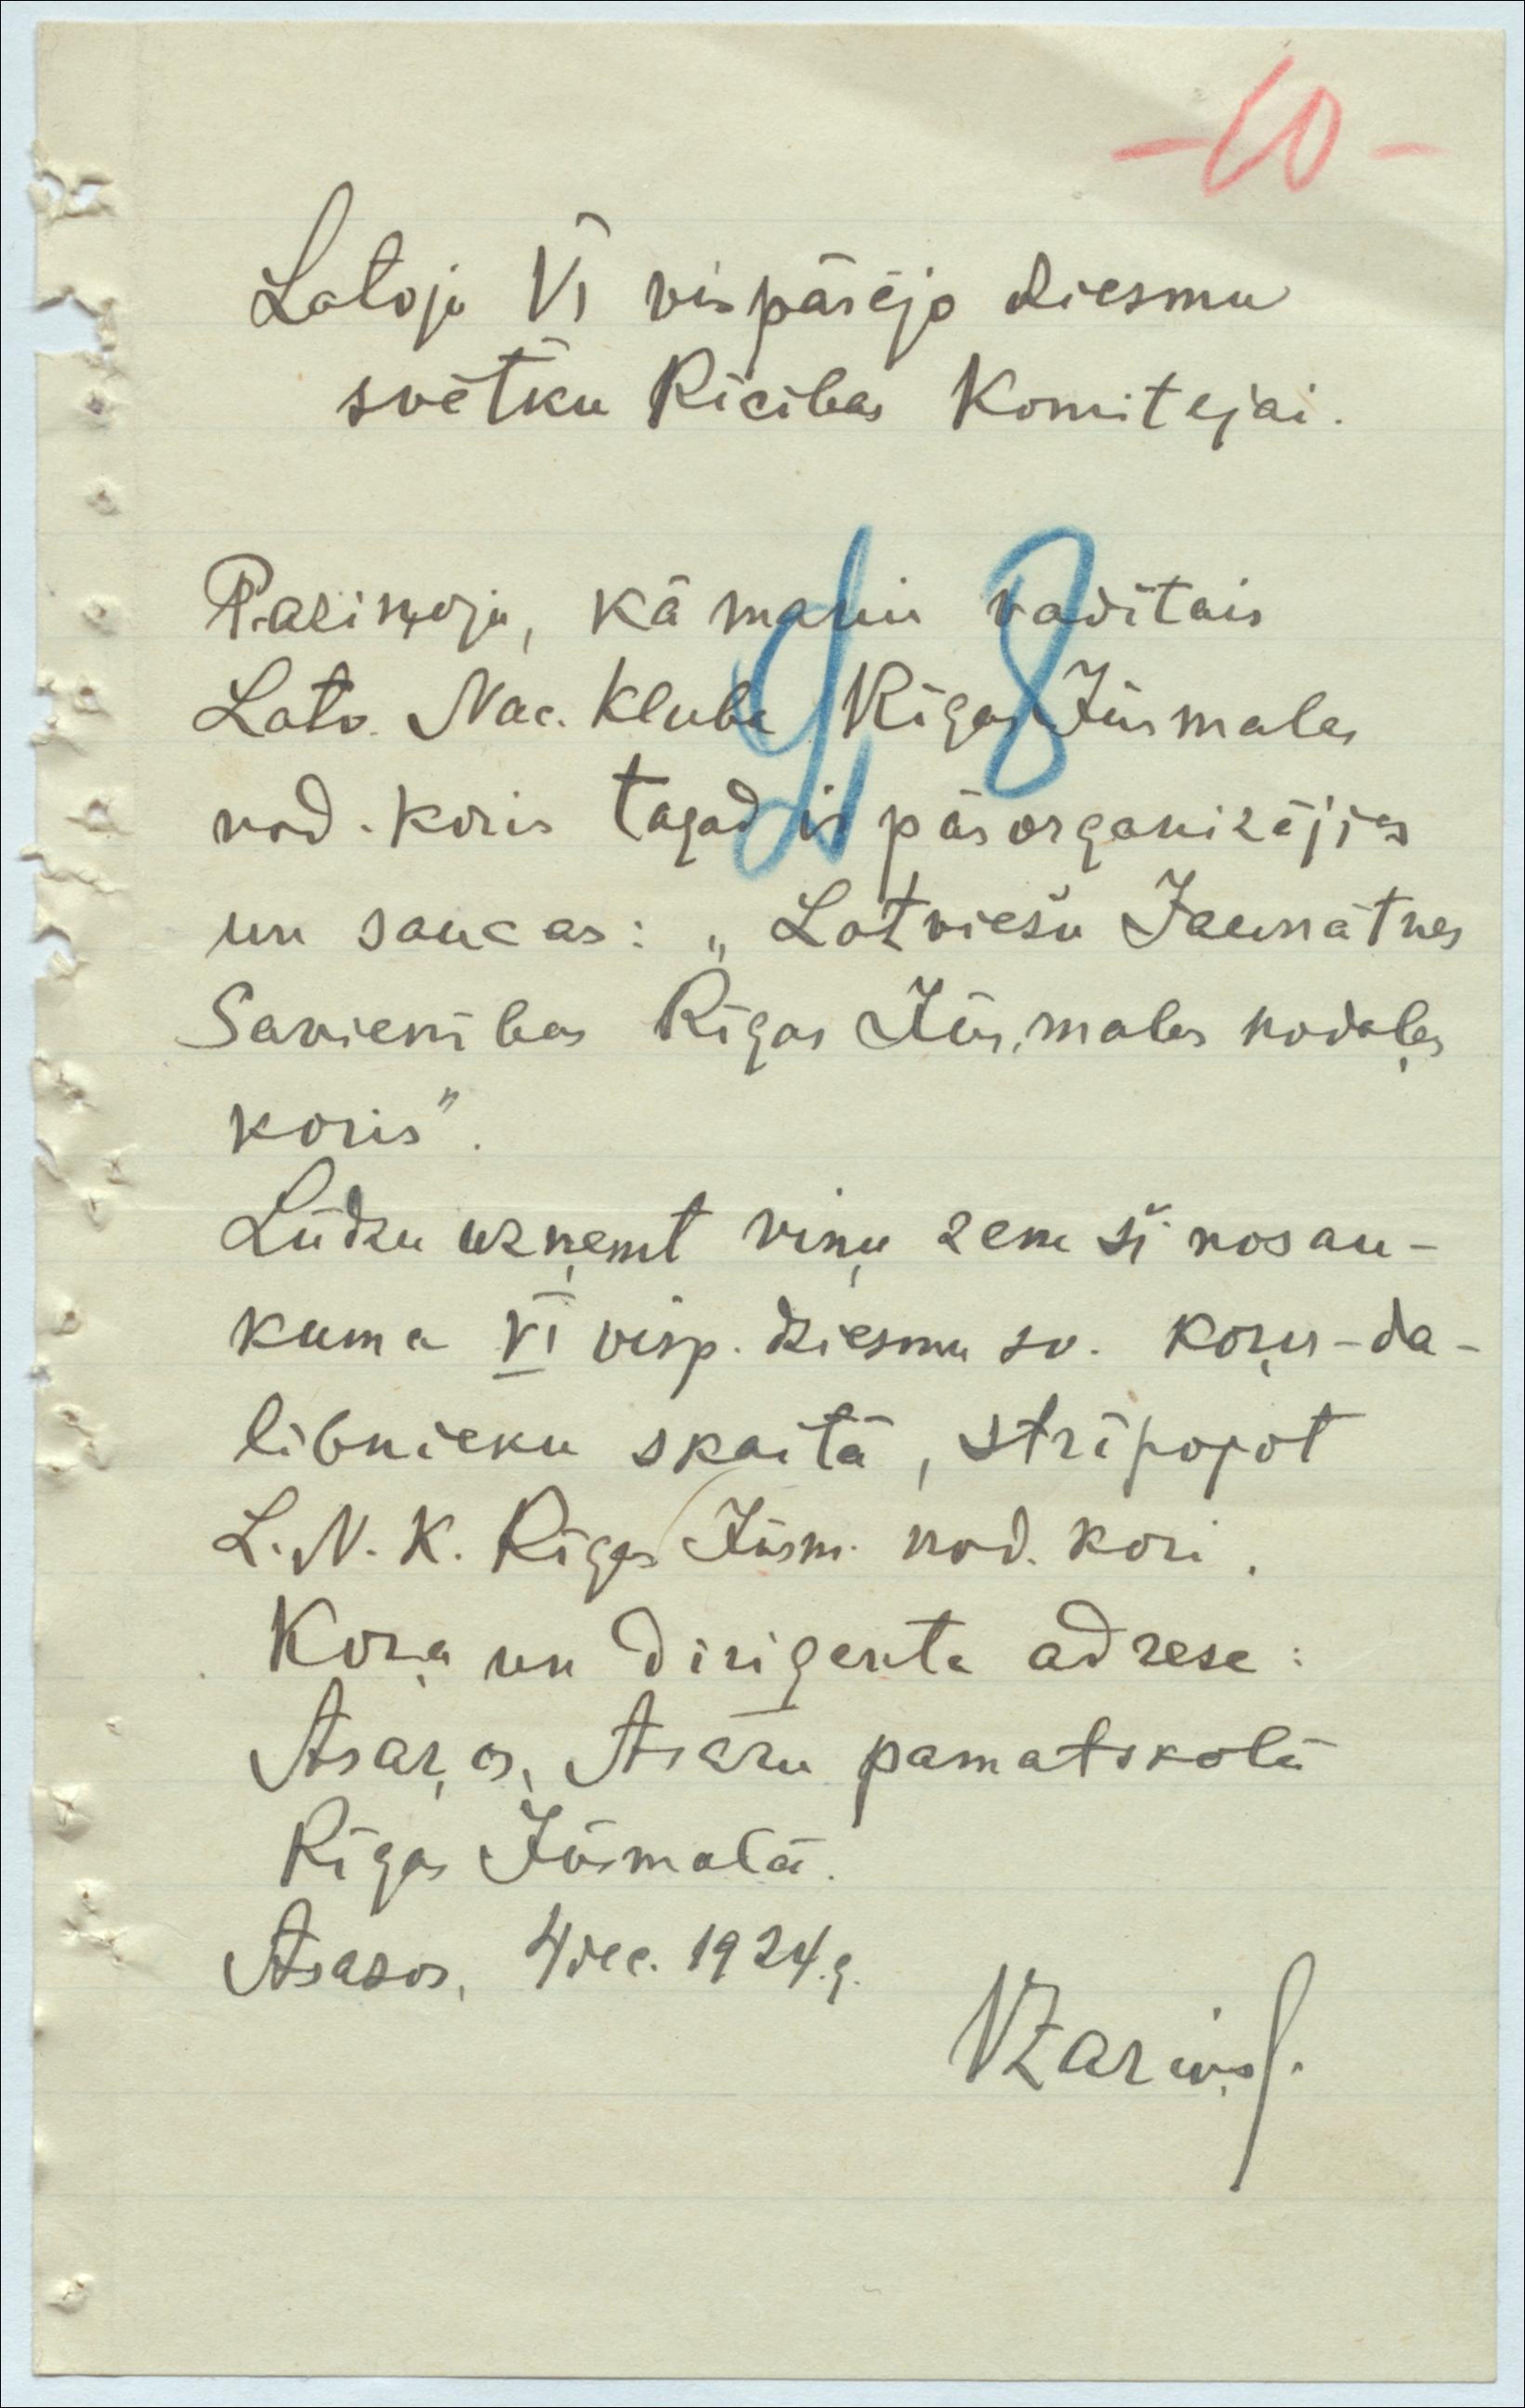 -60-
Latvju VI vispārējo dziesmu
svētku Rīcības Komitejai.
98
Paziņoju, kā manis vadītais
Latv. Nac. Kluba Rīgas Jūrmales
nod. koris tagad ir pārorganizējies
un saucas: „Latviešu Jaunatnes
Savienības Rīgas Jūrmales nodaļas
koris”.
Lūdzu uzņemt viņu zem šī nosau-
kuma VI visp. dziesmu sv. koru-da-
libnieku skaitā, strīpojot
L.N.K. Rīgas Jūrm. nod. kori.
Kora un diriģenta adrese:
Asaros, Asaru pamatskolā
Rīgas Jūrmalā.
Asaros, 4 dec. 1924.g.
VZariņš.